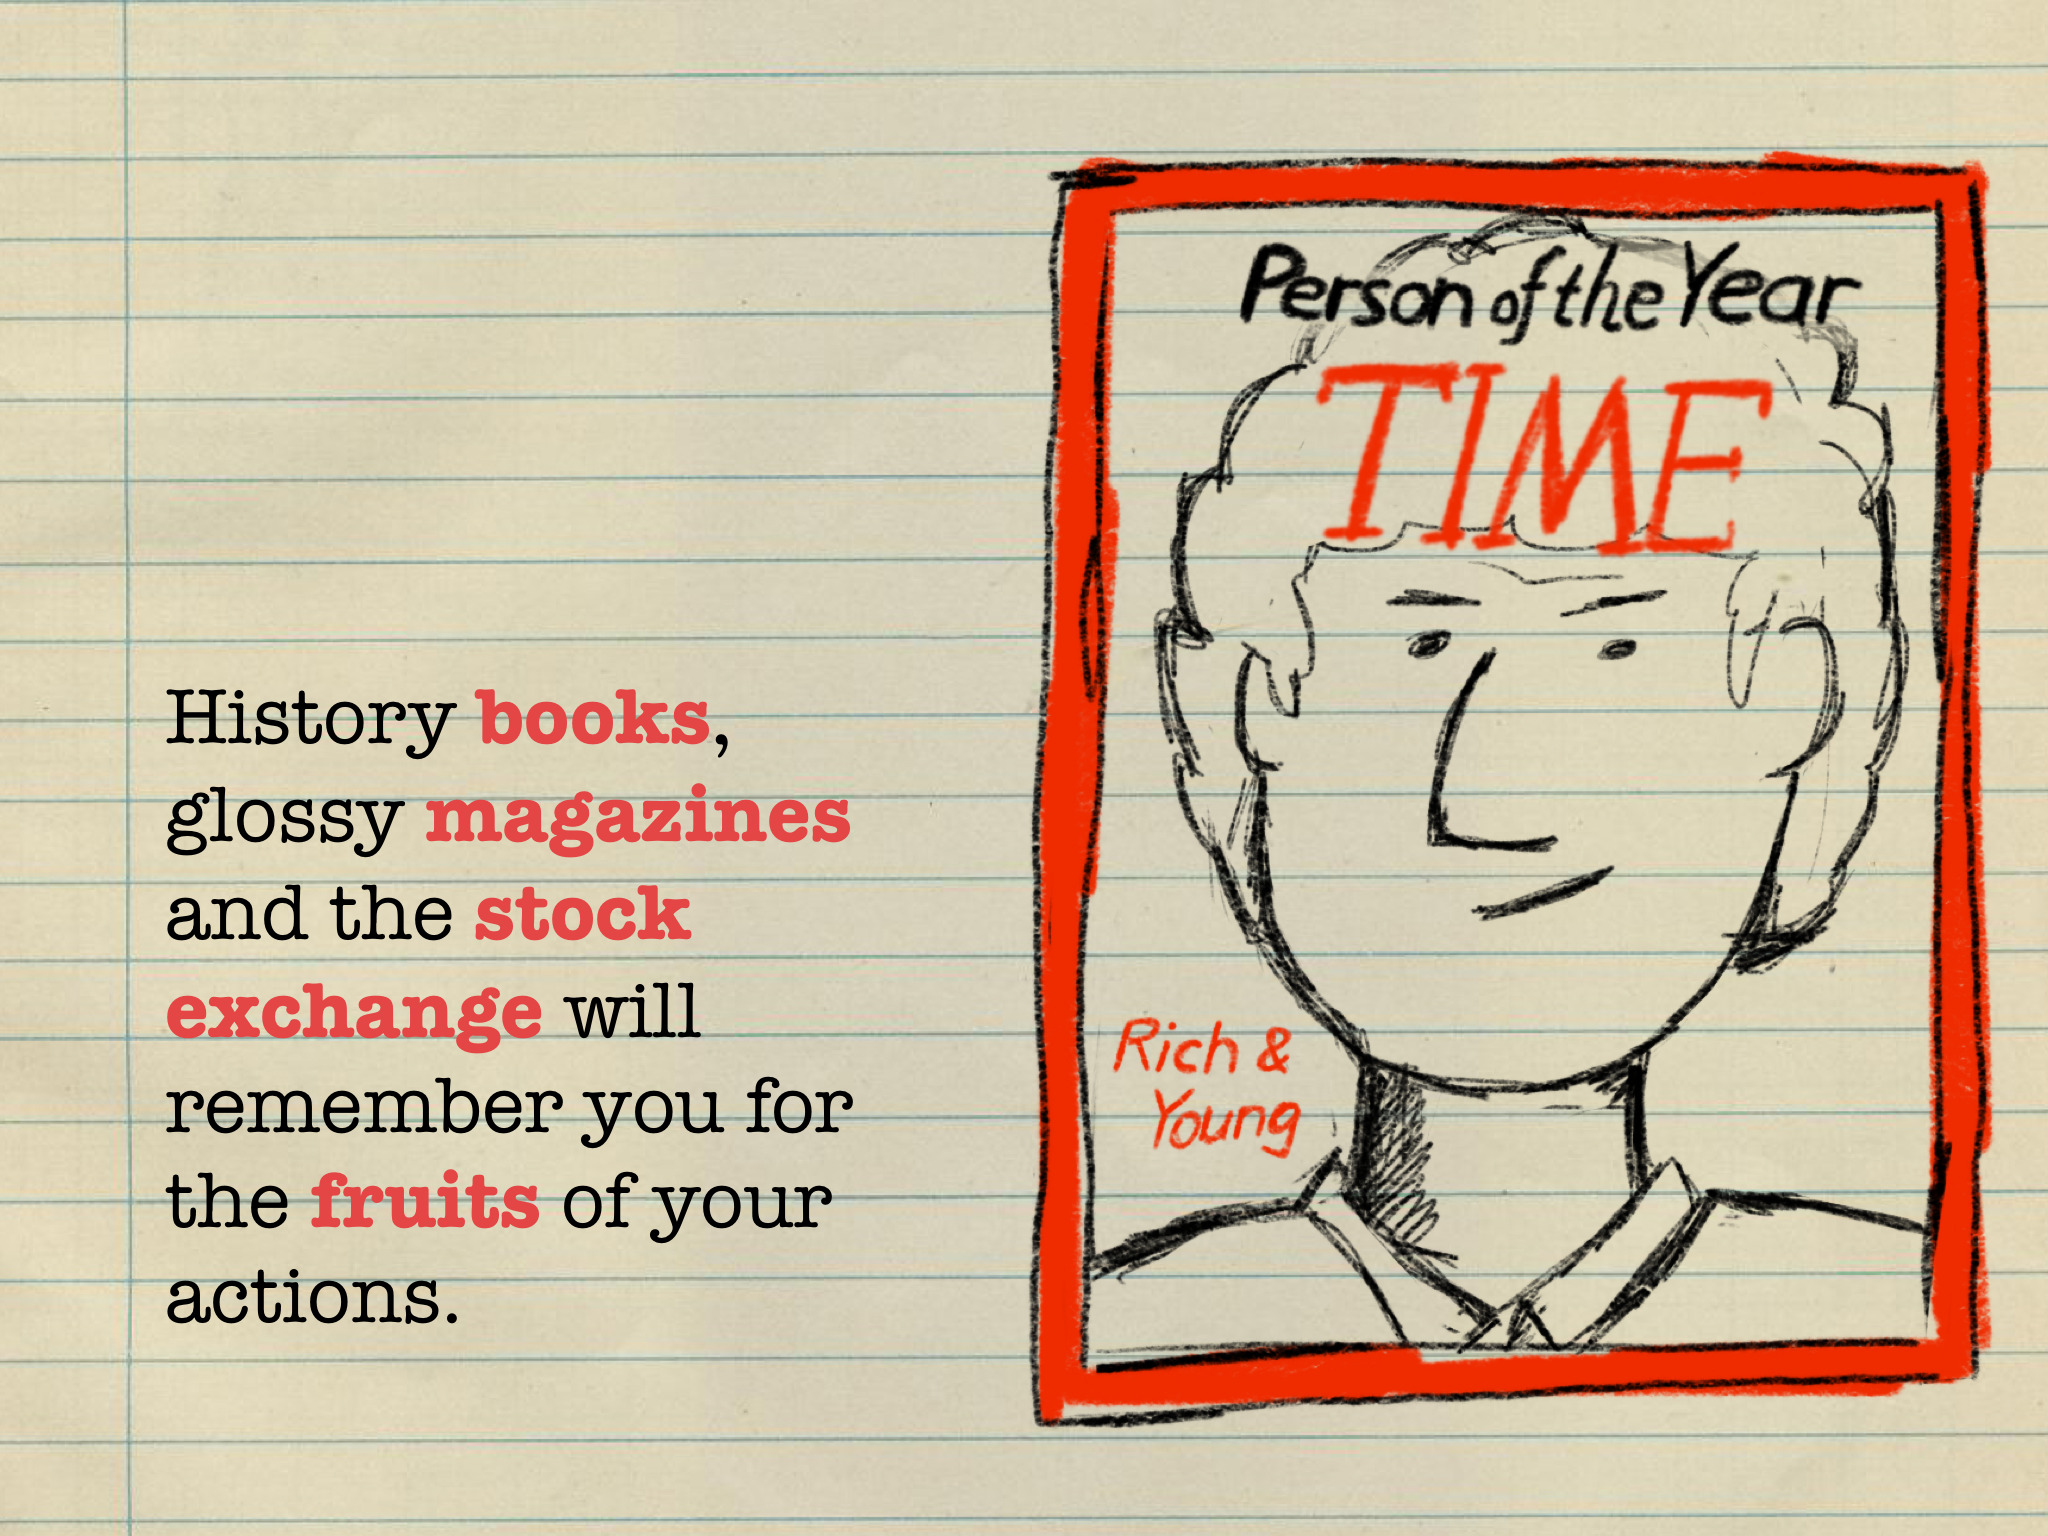 History books,
glossy magazines
and the stock
exchange will
remember you for
the fruits of your
actions.
Person of the Year
TIME
Rich &
Young